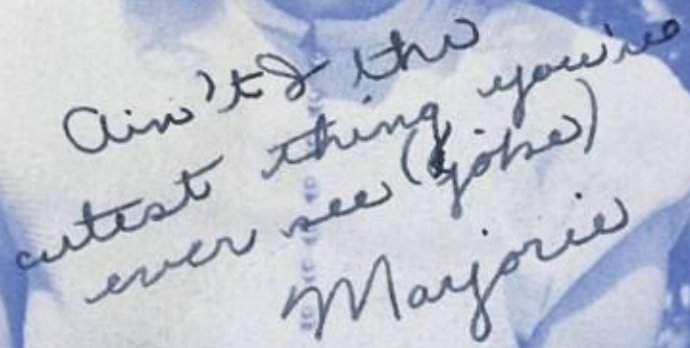 Ain't I the
cutest thing you've
ever see (joke)
Marjorie